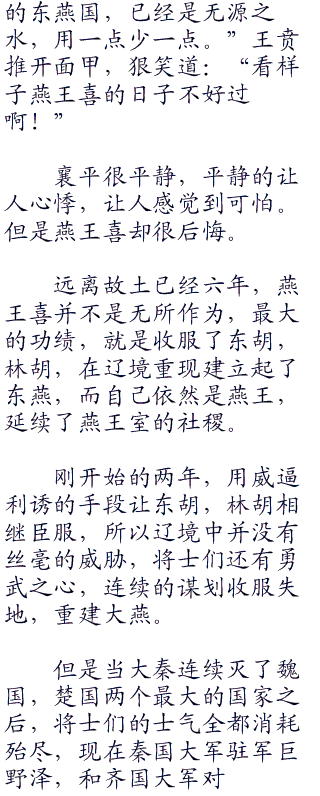 的东燕国，已经是无源之
水，用一点少一点。”王贲
推开面甲，狠笑道：“看样
子燕王喜的日子不好过
啊！”
襄平很平静，平静的让
人心悸，让人感觉到可怕。
但是燕王喜却很后悔。
远离故土已经六年，燕
王喜并不是无所作为，最大
的功绩，就是收服了东胡，
林胡，在辽境重现建立起了
东燕，而自己依然是燕王，
延续了燕王室的社稷。
刚开始的两年，用威逼
利诱的手段让东胡，林胡相
继臣服，所以辽境中并没有
丝毫的威胁，将士们还有勇
武之心，连续的谋划收服失
地，重建大燕。
但是当大秦连续灭了魏
国，楚国两个最大的国家之
后，将士们的士气全都消耗
殆尽，现在秦国大军驻军巨
野泽，和齐国大军对